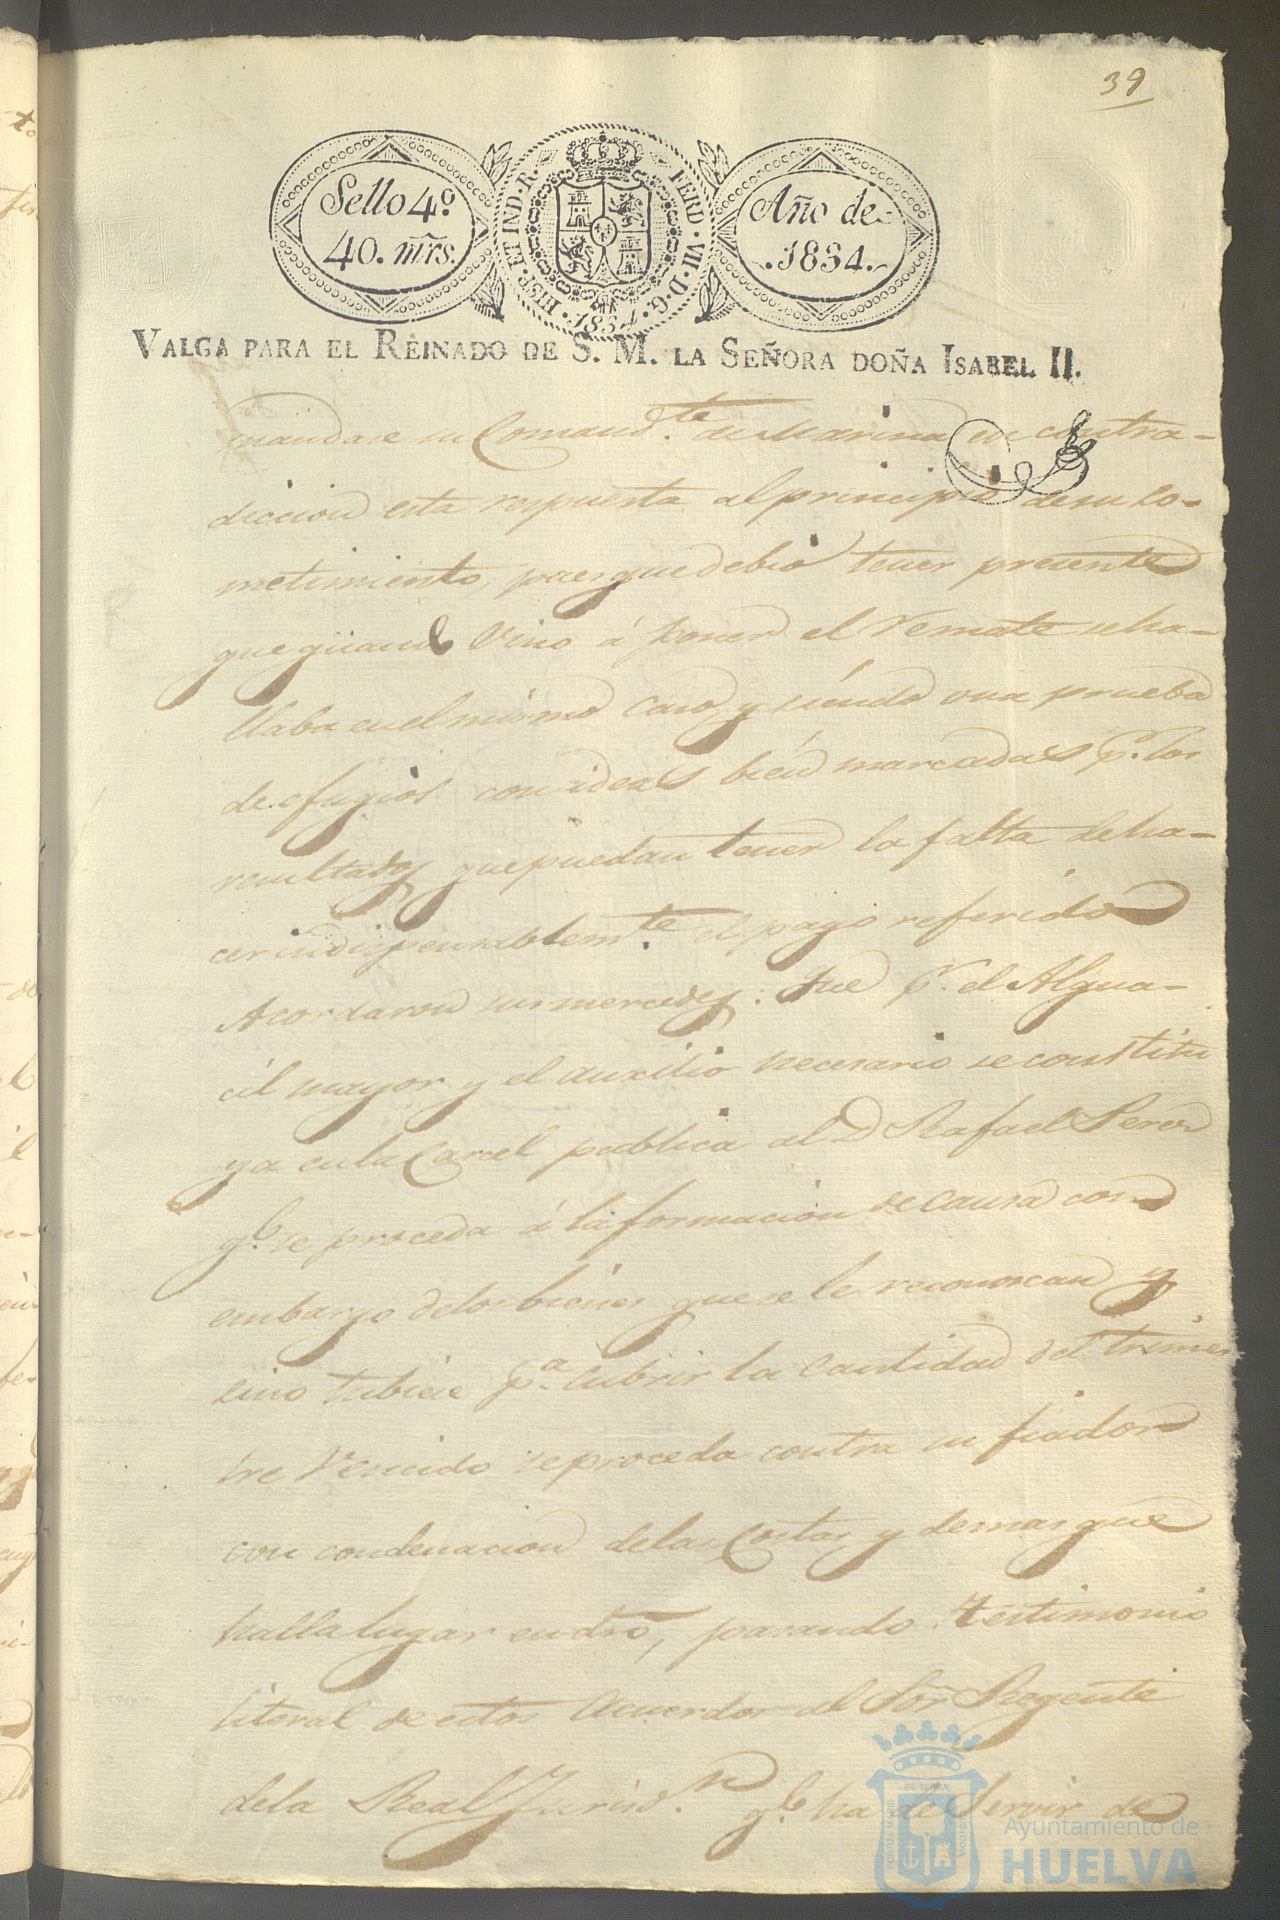 39
Sello 4º
40. mrs.
HISP. ET IND. R. FERD. VII. D. G. 1834.
Año de
1834.
VALGA PARA EL REINADO DE S. M. LA SEÑORA DOÑA ISABEL II.
mandase su Comand.te de Marina en contra-
diccion esta respuesta al principio de su so-
metimiento, pues que debio tener presente
que quando vino á poner el remate se ha-
llaba en el mismo caso, y siendo una prueba
de efugios con ideas bien marcadas p.r los
resultados que puedan tener la falta de ha-
cer indispensablem.te el pago referido
Acordaron sus mercedes: Que p.r el Algua-
cil mayor y el auxilio necesario se constitu
ya en la Carcel publica al D Rafael
q.e se proceda á la formacion de causa con
embargo de los bienes que se le reconoscan y
sino tubiese p.a cubrir la cantidad del trimes
tre vencido se proceda contra su fiador
con condenacion de las Costas y demas que
halla lugar en dro, pasando testimonio
literal de estos Acuerdos al Sor Regente
de la Real Jurisd.n q.e ha de servir de
PORTUS MARIS ET TERRAE CUSTODIA
Ayuntamiento de
HUELVA